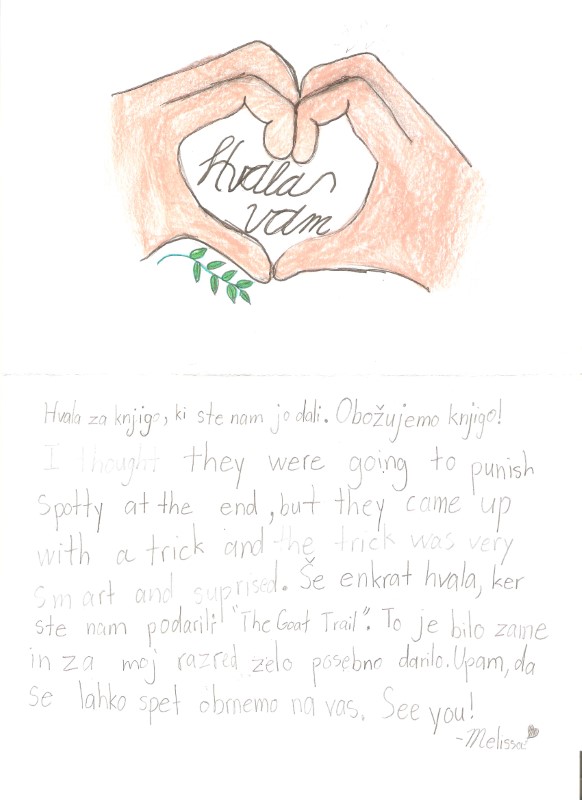 Hvala
vam
Hvala za knjigo, ki ste nam jo dali. Obožujemo knjigo!
I thought they were going to punish
Spotty at the end, but they came up
with a trick and the trick was very
smart and suprised. Še enkrat hvala, ker
ste nam podarili "The Goat Trail". To je bilo zame
in za moj razred zelo posebno darilo. Upam, da
se lahko spet obrnemo na vas. See you!
-Melissa